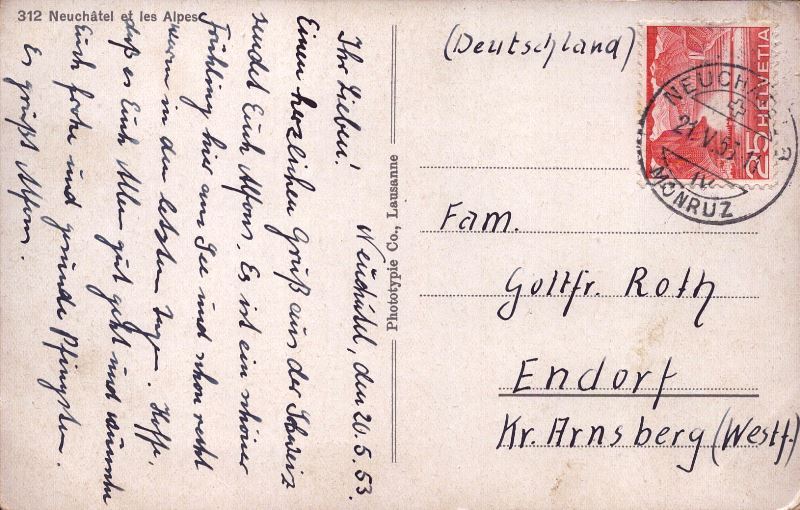 312 Neuchâtel et les Alpes
Neuchâtel, den 20.5.53.
Ihr Lieben!
Einen herzlichen Gruß aus der Schweiz
sendet Euch Alfons. Es ist ein schöner
Frühling hier am See und schon recht
warm in den letzten Tagen. Hoffe,
daß es Euch Allen gut geht und wünsche
Euch frohe und gesunde Pfingsten.
Es grüßt Alfons.
Phototypie Co., Lausanne
(Deutschland)
HELVETIA
25
NEUCHÂTEL
21.V.53
MONRUZ
Fam.
Gottfr. Roth
Endorf
Kr. Arnsberg (Westf.)